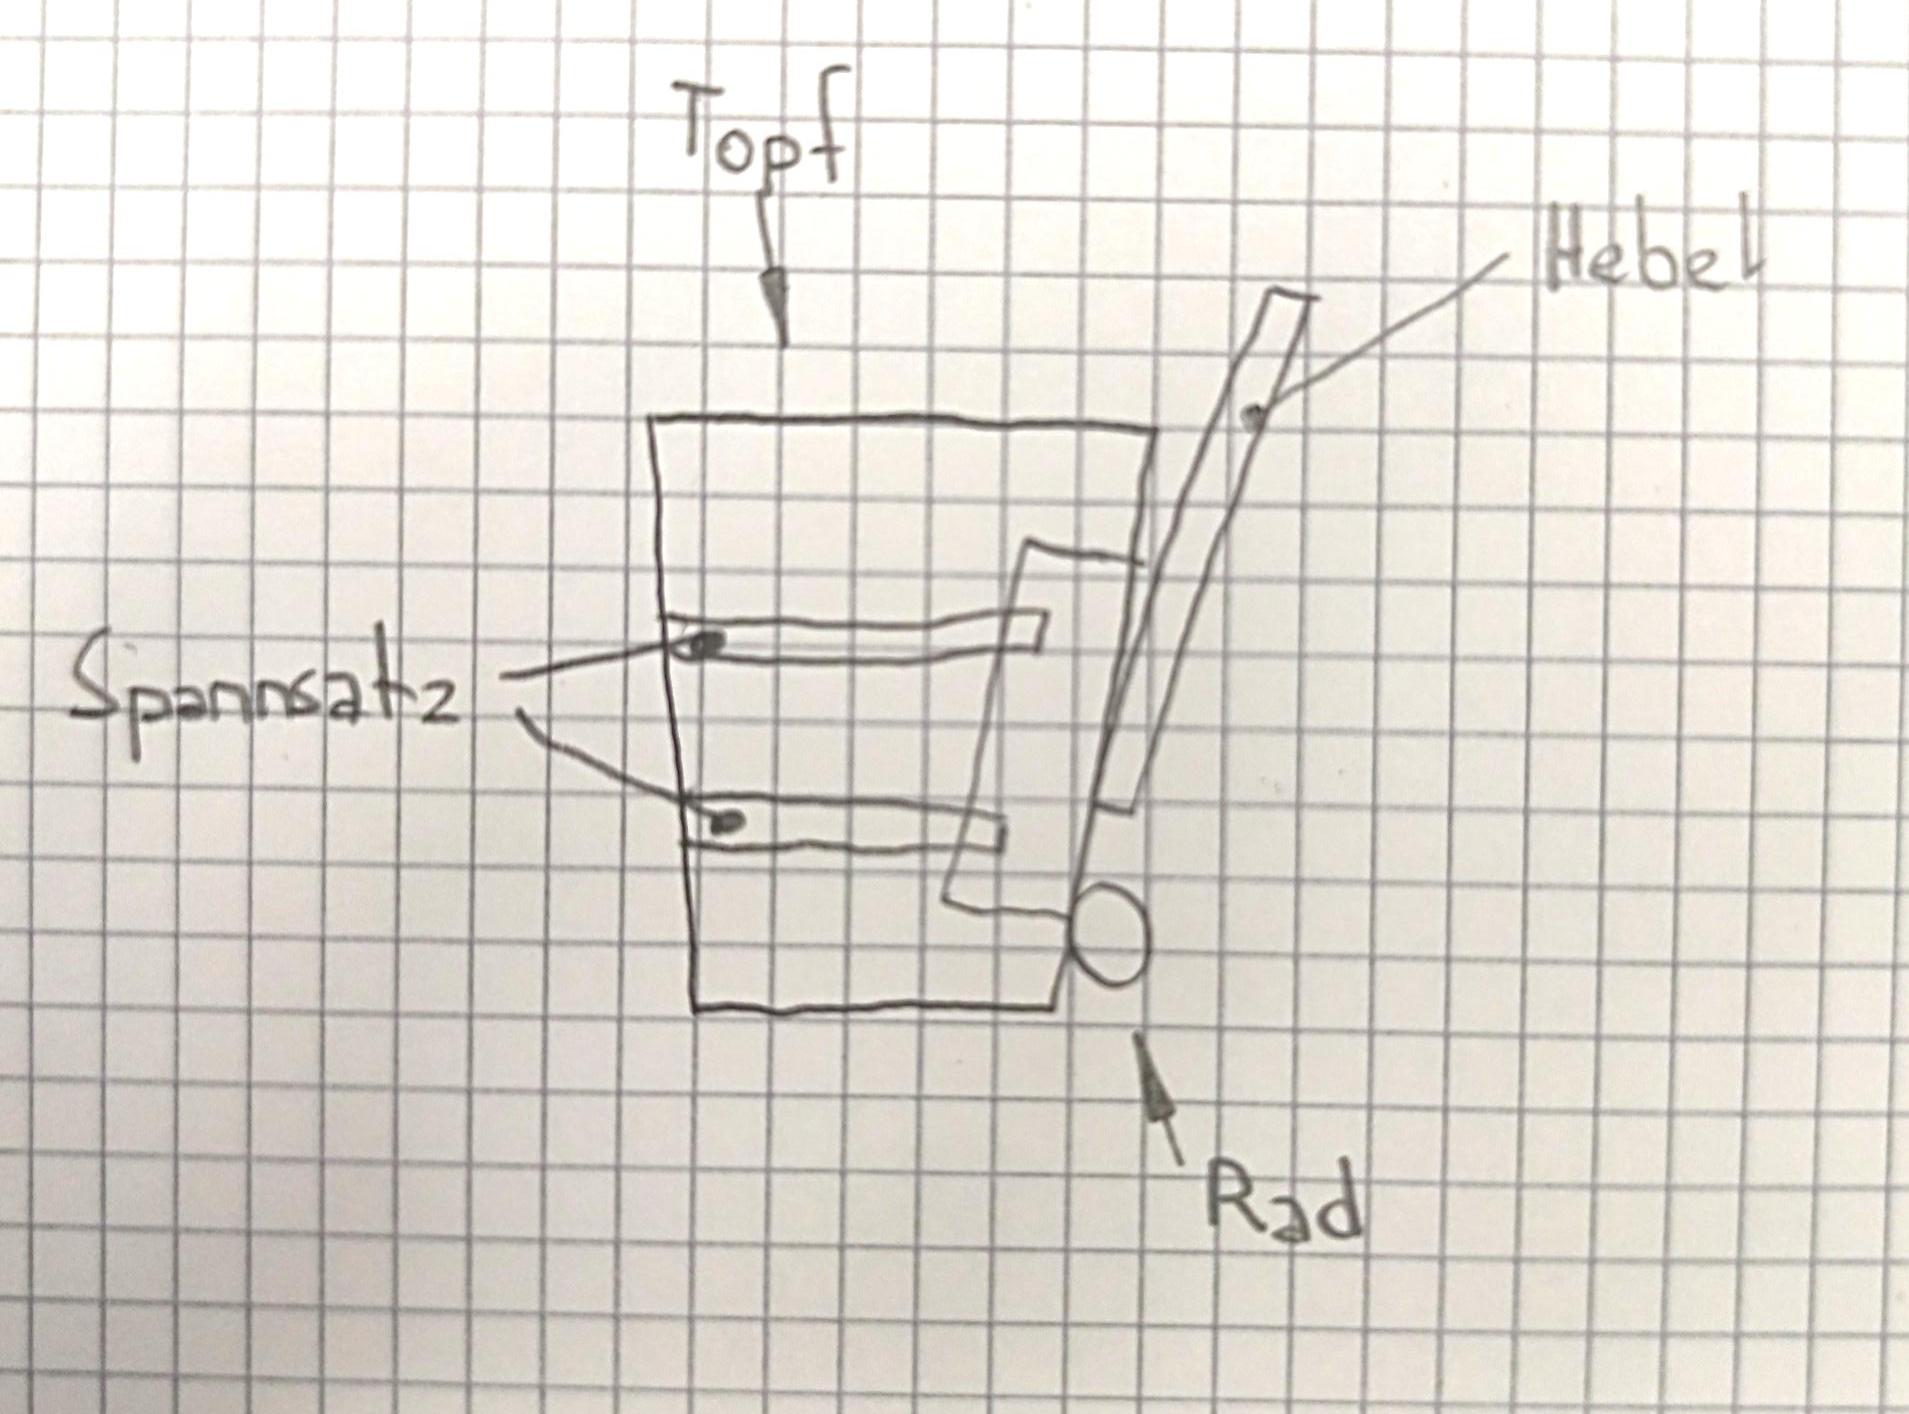 Topf
Hebel
Spannsatz
Rad